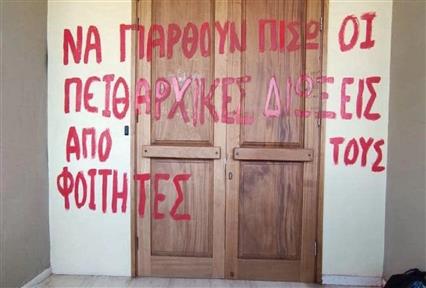 ΝΑ ΠΑΡΘΟΥΝ ΠΙΣΩ ΟΙ
ΠΕΙΘΑΡΧΙΚΕΣ ΔΙΩΞΕΙΣ
ΑΠΟ ΤΟΥΣ
ΦΟΙΤΗΤΕΣ